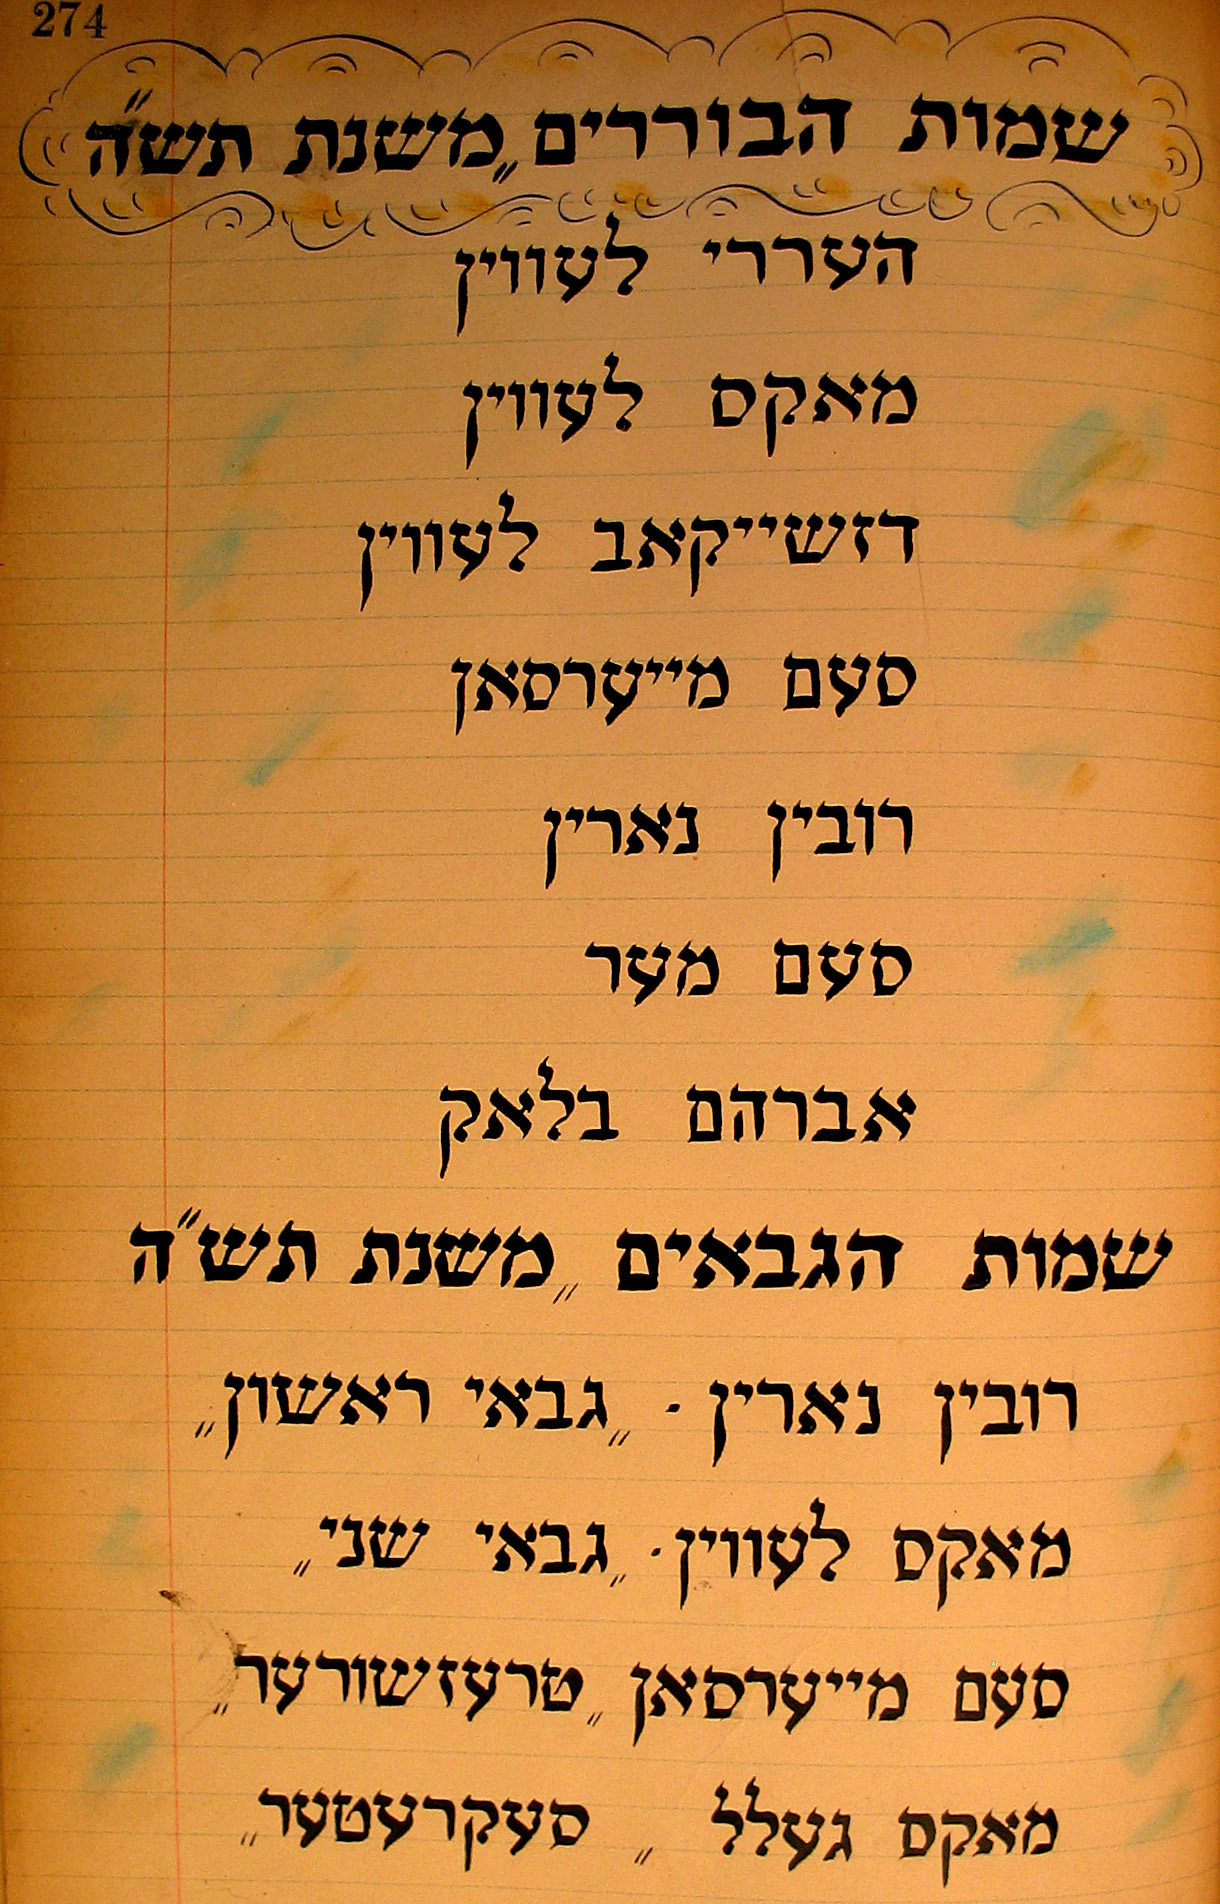 274
שמות הבוררים „משנת תש״ה
העררי לעווין
מאקס לעווין
דזשייקאב לעווין
סעם מייערסאן
רובין נארין
סעם מער
אברהם בלאק
שמות הגבאים „משנת תש״ה
רובין נארין - „גבאי ראשון„
מאקס לעווין - „גבאי שני„
סעם מייערסאן „טרעזשורער„
מאקס געלל „ סעקרעטער„